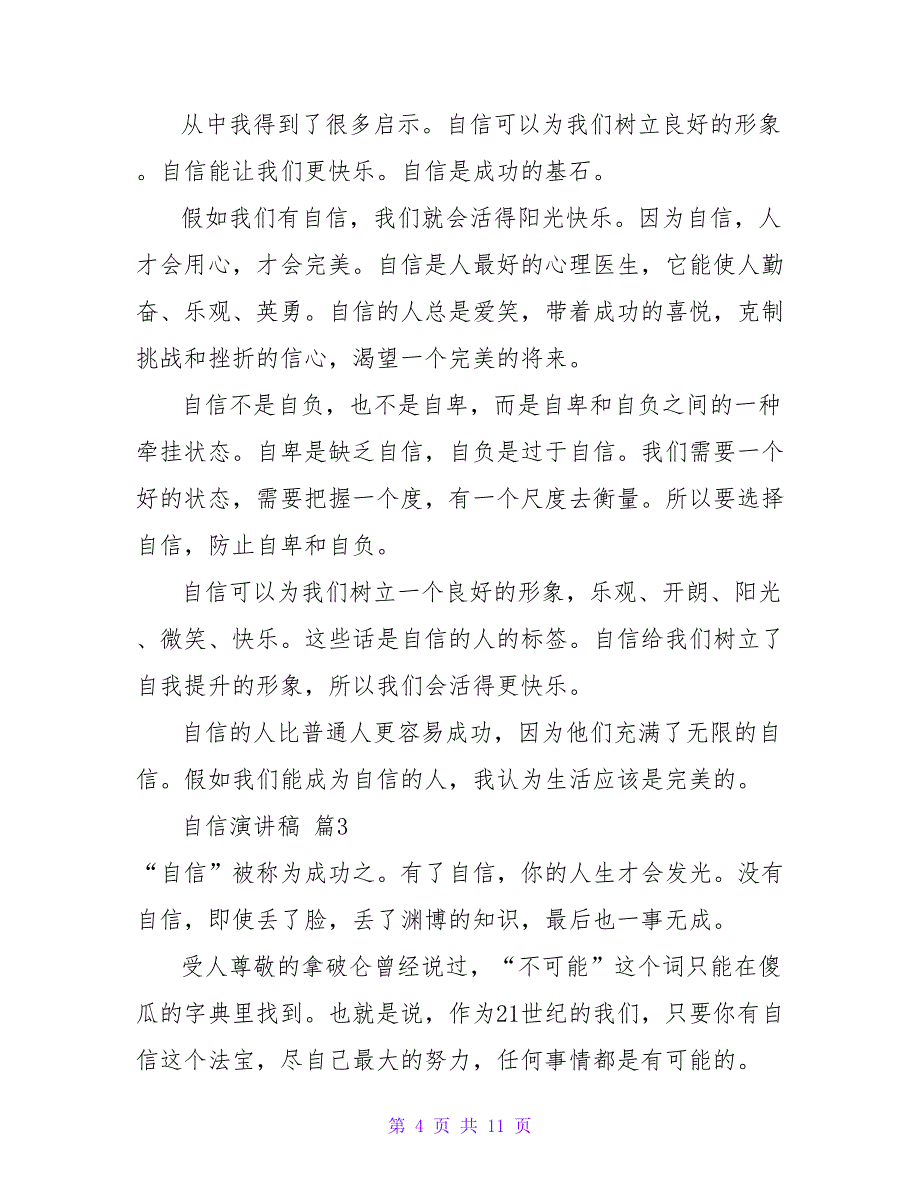 从中我得到了很多启示。自信可以为我们树立良好的形象
。自信能让我们更快乐。自信是成功的基石。
假如我们有自信，我们就会活得阳光快乐。因为自信，人
才会用心，才会完美。自信是人最好的心理医生，它能使人勤
奋、乐观、英勇。自信的人总是爱笑，带着成功的喜悦，克制
挑战和挫折的信心，渴望一个完美的将来。
自信不是自负，也不是自卑，而是自卑和自负之间的一种
牵挂状态。自卑是缺乏自信，自负是过于自信。我们需要一个
好的状态，需要把握一个度，有一个尺度去衡量。所以要选择
自信，防止自卑和自负。
自信可以为我们树立一个良好的形象，乐观、开朗、阳光
、微笑、快乐。这些话是自信的人的标签。自信给我们树立了
自我提升的形象，所以我们会活得更快乐。
自信的人比普通人更容易成功，因为他们充满了无限的自
信。假如我们能成为自信的人，我认为生活应该是完美的。
自信演讲稿 篇3
“自信”被称为成功之。有了自信，你的人生才会发光。没有
自信，即使丢了脸，丢了渊博的知识，最后也一事无成。
受人尊敬的拿破仑曾经说过，“不可能”这个词只能在傻
瓜的字典里找到。也就是说，作为21世纪的我们，只要你有自
信这个法宝，尽自己最大的努力，任何事情都是有可能的。
第 4 页 共 11 页